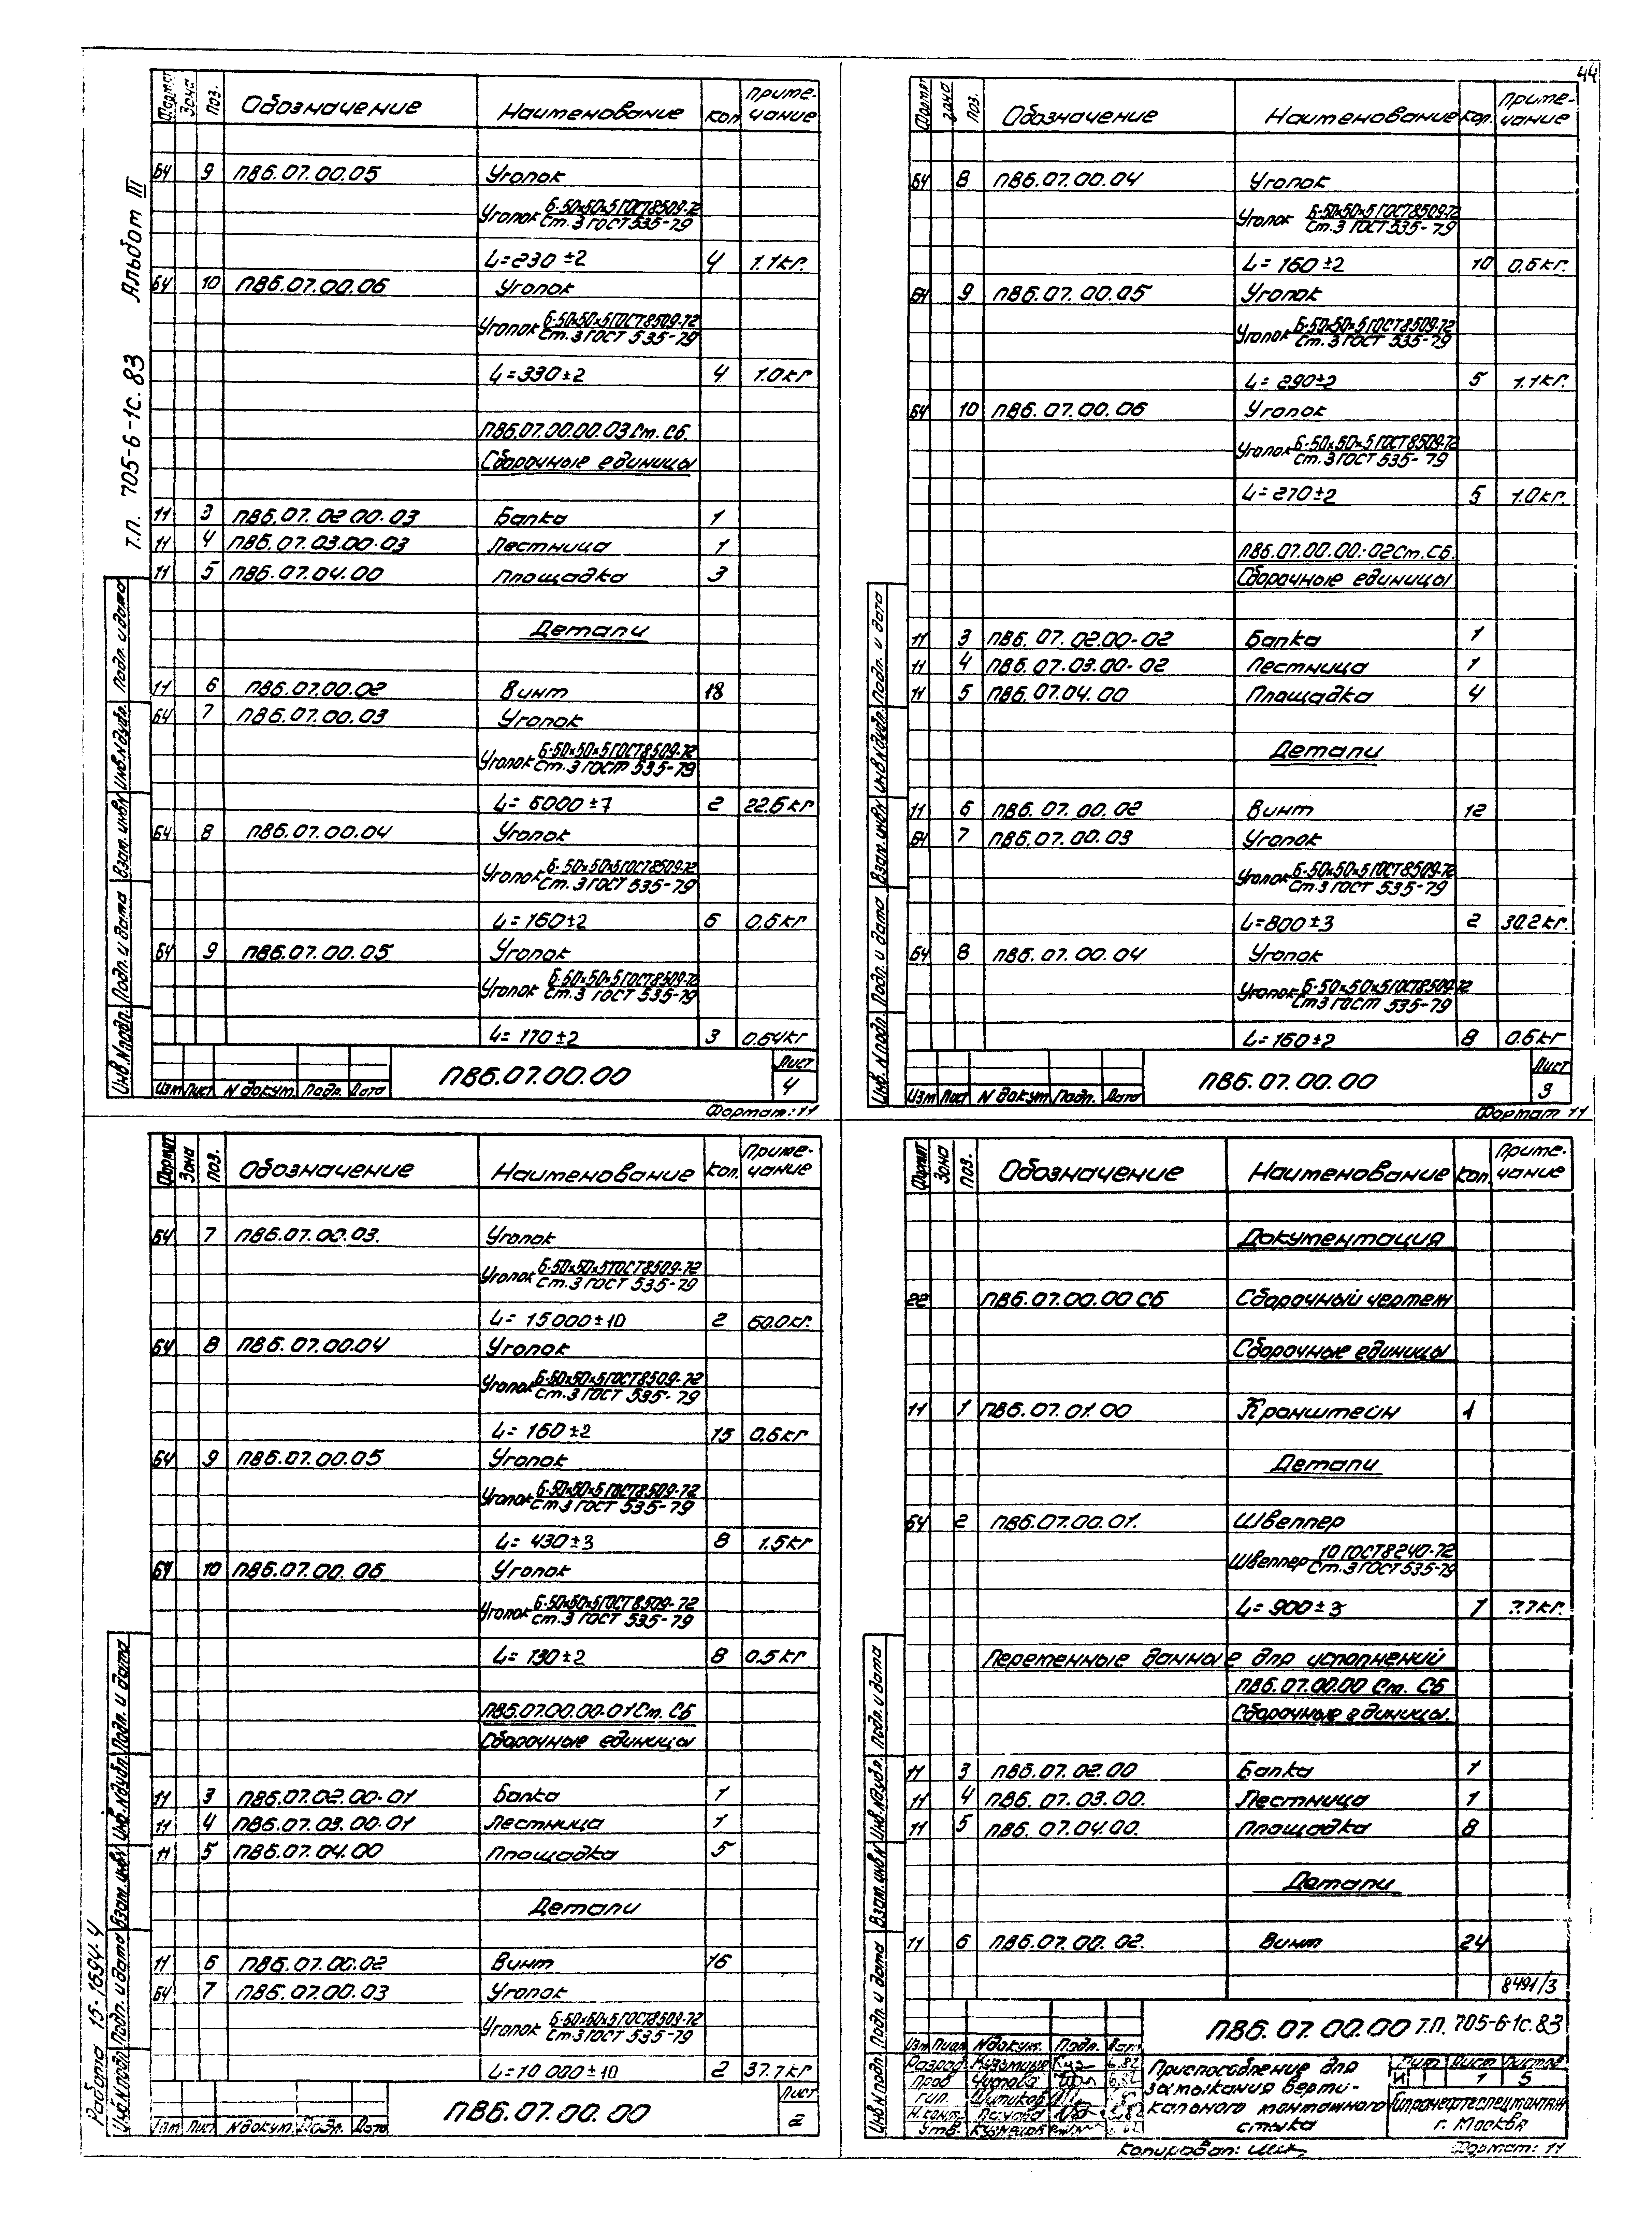 44
Т.П. 705-6-1с.83 Альбом III
Формат Зона Поз. Обозначение Наименование Кол Приме-чание
БЧ 9 ПВ6.07.00.05 Уголок
Уголок Б-50×50×5 ГОСТ 8509-72
Ст.3 ГОСТ 535-79
L=230±2 4 1.1кг.
БЧ 10 ПВ6.07.00.06 Уголок
Уголок Б-50×50×5 ГОСТ 8509-72
Ст.3 ГОСТ 535-79
L=330±2 4 1.0кг
ПВ6.07.00.00.03 Ст. Сб.
Сборочные единицы
11 3 ПВ6.07.02.00-03 Балка 1
11 4 ПВ6.07.03.00-03 Лестница 1
11 5 ПВ6.07.04.00 Площадка 3
Детали
11 6 ПВ6.07.00.02 Винт 18
БЧ 7 ПВ6.07.00.03 Уголок
Уголок Б-50×50×5 ГОСТ 8509-72
Ст.3 ГОСТ 535-79
L=6000±7 2 22.6кг
БЧ 8 ПВ6.07.00.04 Уголок
Уголок Б-50×50×5 ГОСТ 8509-72
Ст.3 ГОСТ 535-79
L=160±2 6 0.6кг
БЧ 9 ПВ6.07.00.05 Уголок
Уголок Б-50×50×5 ГОСТ 8509-72
Ст.3 ГОСТ 535-79
L=170±2 3 0.64кг
Инв.№ подл. Подп. и дата Взам. инв.№ Инв.№ дубл. Подп. и дата
Изм Лист N докум. Подп. Дата
ПВ6.07.00.00
Лист
4
Формат: 11
Формат Зона Поз. Обозначение Наименование Кол. Приме-чание
БЧ 8 ПВ6.07.00.04 Уголок
Уголок Б-50×50×5 ГОСТ 8509-72
Ст.3 ГОСТ 535-79
L=160±2 10 0.6кг.
БЧ 9 ПВ6.07.00.05 Уголок
Уголок Б-50×50×5 ГОСТ 8509-72
Ст.3 ГОСТ 535-79
L=290±2 5 1.1кг.
БЧ 10 ПВ6.07.00.06 Уголок
Уголок Б-50×50×5 ГОСТ 8509-72
Ст.3 ГОСТ 535-79
L=270±2 5 1.0кг.
ПВ6.07.00.00-02 Ст. Сб.
Сборочные единицы
11 3 ПВ6.07.02.00-02 Балка 1
11 4 ПВ6.07.03.00-02 Лестница 1
11 5 ПВ6.07.04.00 Площадка 4
Детали
11 6 ПВ6.07.00.02 Винт 12
БЧ 7 ПВ6.07.00.03 Уголок
Уголок Б-50×50×5 ГОСТ 8509-72
Ст.3 ГОСТ 535-79
L=800±3 2 30.2кг.
БЧ 8 ПВ6.07.00.04 Уголок
Уголок Б-50×50×5 ГОСТ 8509-72
Ст3 ГОСТ 535-79
L=160±2 8 0.6кг
Инв.№ подл. Подп. и дата Взам. инв.№ Инв.№ дубл. Подп. и дата
Изм Лист N докум Подп. Дата
ПВ6.07.00.00
Лист
3
Формат 11
Формат Зона Поз. Обозначение Наименование Кол. Приме-чание
БЧ 7 ПВ6.07.00.03. Уголок
Уголок Б-50×50×5 ГОСТ 8509-72
Ст.3 ГОСТ 535-79
L=15000±10 2 60.0кг.
БЧ 8 ПВ6.07.00.04 Уголок
Уголок Б-50×50×5 ГОСТ 8509-72
Ст.3 ГОСТ 535-79
L=160±2 15 0.6кг
БЧ 9 ПВ6.07.00.05 Уголок
Уголок Б-50×50×5 ГОСТ 8509-72
Ст.3 ГОСТ 535-79
L=430±3 8 1.5кг
БЧ 10 ПВ6.07.00.06 Уголок
Уголок Б-50×50×5 ГОСТ 8509-72
Ст.3 ГОСТ 535-79
L=130±2 8 0.5кг
ПВ6.07.00.00-01 Ст. Сб
Сборочные единицы
11 3 ПВ6.07.02.00-01 Балка 1
11 4 ПВ6.07.03.00-01 Лестница 1
11 5 ПВ6.07.04.00 Площадка 5
Детали
11 6 ПВ6.07.00.02 Винт 16
БЧ 7 ПВ6.07.00.03 Уголок
Уголок Б-50×50×5 ГОСТ 8509-72
Ст.3 ГОСТ 535-79
L=10 000±10 2 37.7кг
Работа 15-1694-4
Инв.№ подл. Подп. и дата Взам. инв.№ Инв.№ дубл. Подп. и дата
Изм Лист N докум Подп. Дата
ПВ6.07.00.00
Лист
2
Формат Зона Поз. Обозначение Наименование Кол. Приме-чание
Документация
22 ПВ6.07.00.00 СБ Сборочный чертеж
Сборочные единицы
11 1 ПВ6.07.01.00 Кронштейн 1
Детали
БЧ 2 ПВ6.07.00.01. Швеллер
Швеллер 10 ГОСТ 8240-72
Ст.3 ГОСТ 535-79
L=900±3 1 7.7кг.
Переменные данные для исполнений
ПВ6.07.00.00 Ст. СБ
Сборочные единицы.
11 3 ПВ6.07.02.00 Балка 1
11 4 ПВ6.07.03.00. Лестница 1
11 5 ПВ6.07.04.00. Площадка 8
Детали
11 6 ПВ6.07.00.02. Винт 24
8491/3
Инв.№ подл. Подп. и дата Взам. инв.№ Инв.№ дубл. Подп. и дата
ПВ6.07.00.00 Т.П. 705-6-1с.83
Изм Лист N докум. Подп. Дата
Разраб. Кузьмина 6.82
Пров. Чутова 6.82
Гип.
Н.конт.
Утв. Кузнецов
Приспособление для
замыкания верти-
кального монтажного
стыка
Лит Лист Листов
И 1 5
Гипронефтеспецмонтаж
г. Москва
Копировал:
Формат: 11